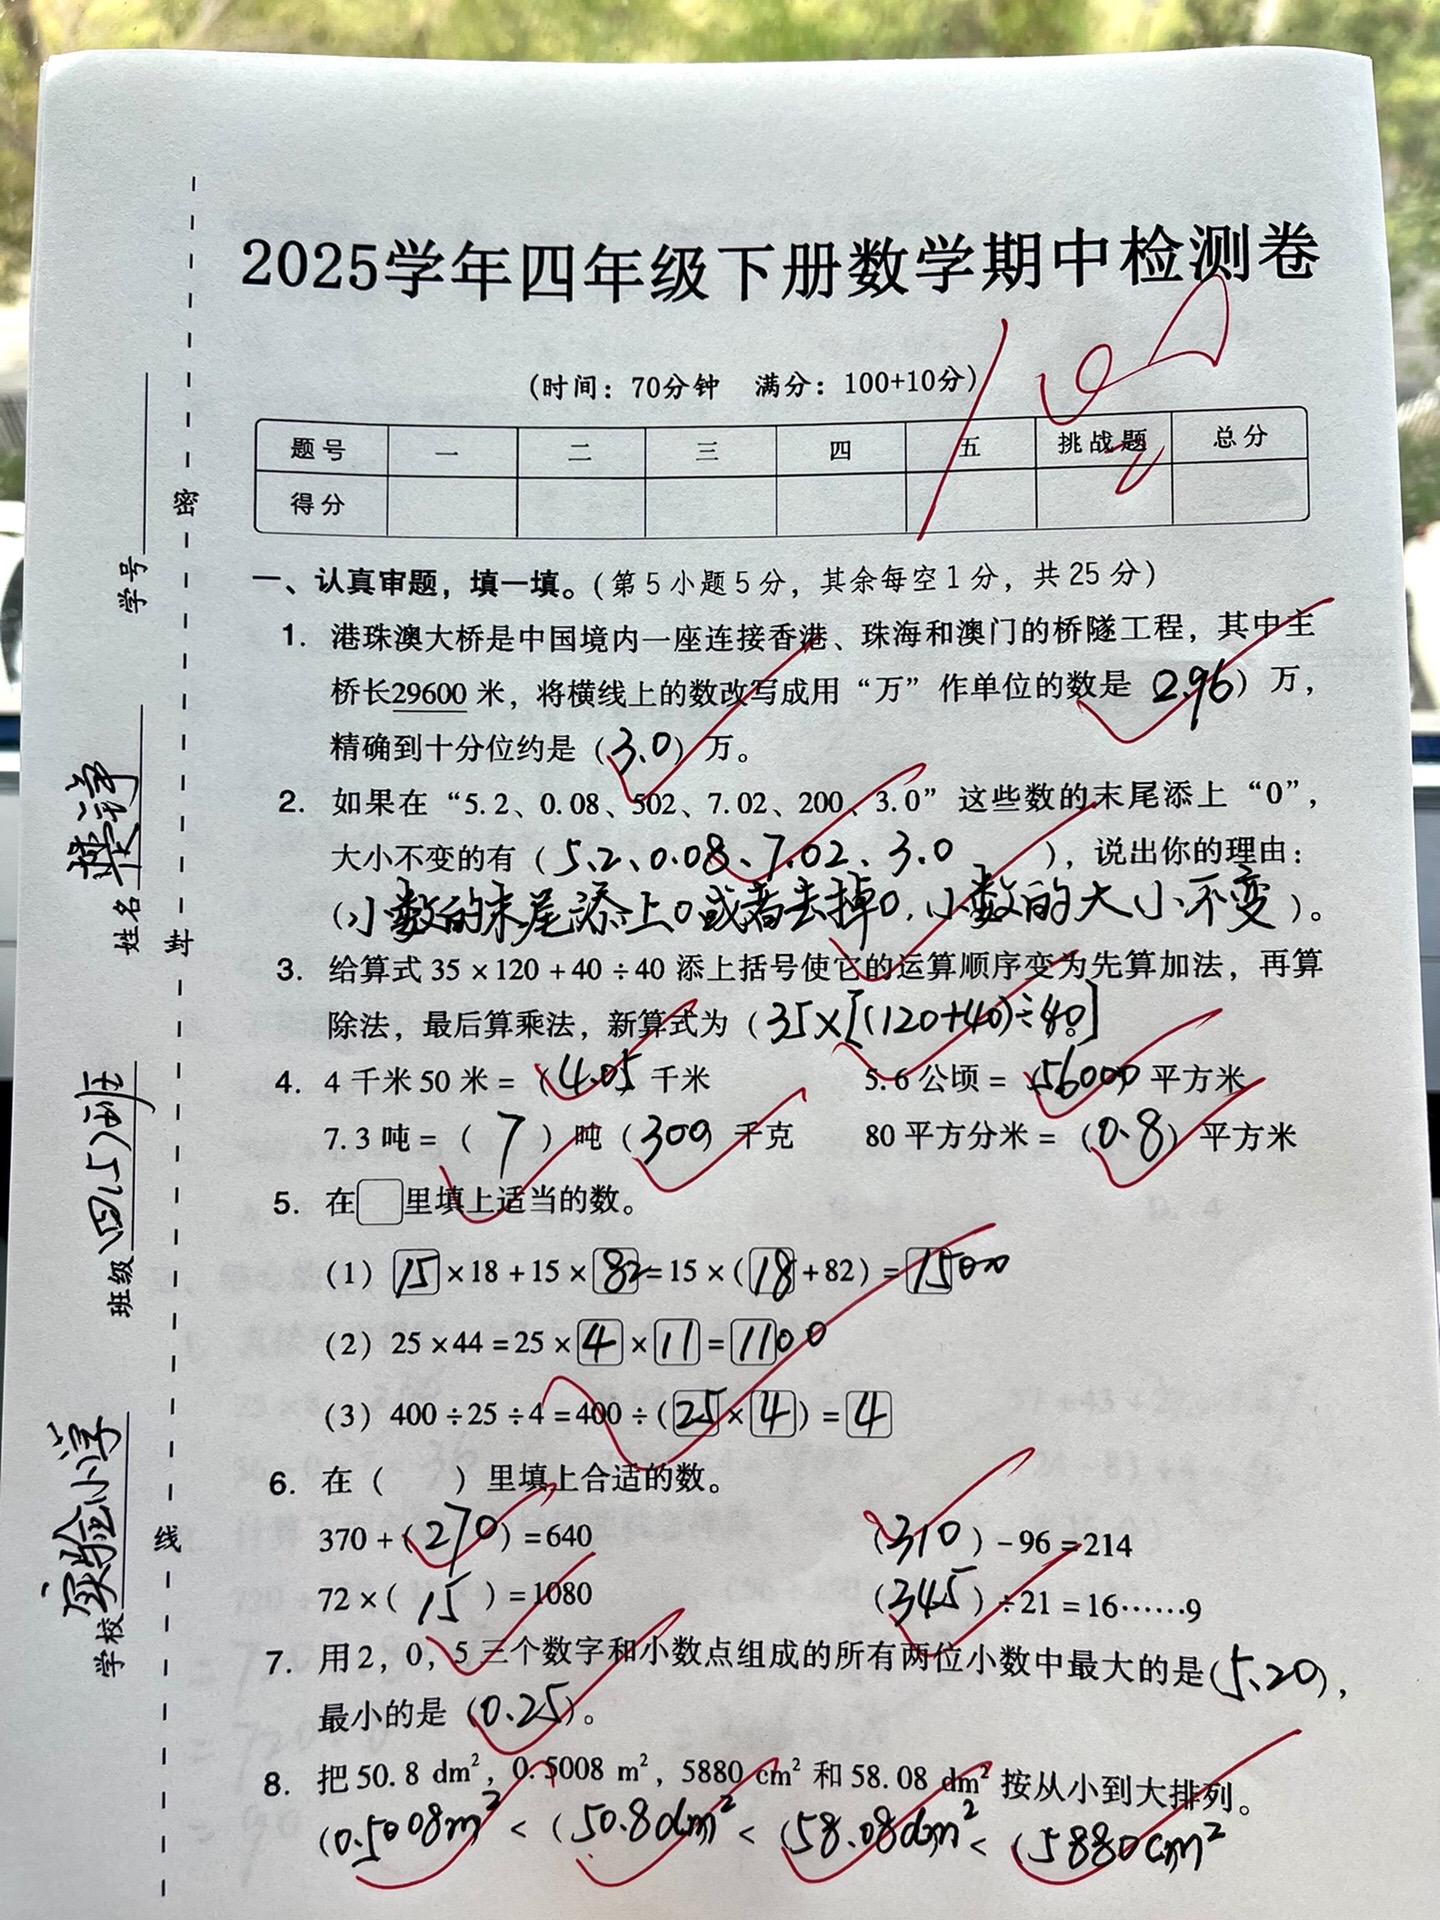 2025学年四年级下册数学期中检测卷
(时间：70分钟 满分：100+10分)
题号 一 二 三 四 五 挑战题 总分
得分
一、认真审题，填一填。(第5小题5分，其余每空1分，共25分)
1. 港珠澳大桥是中国境内一座连接香港、珠海和澳门的桥隧工程，其中主
桥长29600米，将横线上的数改写成用“万”作单位的数是 2.96) 万，
精确到十分位约是 (3.0) 万。
2. 如果在“5.2、0.08、502、7.02、200、3.0”这些数的末尾添上“0”，
大小不变的有 (5.2、0.08、7.02、3.0 )，说出你的理由：
(小数的末尾添上0或者去掉0，小数的大小不变)。
3. 给算式 35×120+40÷40 添上括号使它的运算顺序变为先算加法，再算
除法，最后算乘法，新算式为 (35×[(120+40)÷40]
4. 4千米50米= (4.05 千米 5.6公顷= (56000 平方米
7.3吨= ( 7 ) 吨 (300) 千克 80平方分米= (0.8) 平方米
5. 在□里填上适当的数。
(1) 15×18+15×82=15×(18+82)=1500
(2) 25×44=25×4×11=1100
(3) 400÷25÷4=400÷(25×4)=4
6. 在 ( ) 里填上合适的数。
370+(270)=640 (310)-96=214
72×( 15 )=1080 (345)÷21=16……9
7. 用2，0，5三个数字和小数点组成的所有两位小数中最大的是(5.20)，
最小的是 (0.25)。
8. 把50.8 dm²，0.5008 m²，5880 cm² 和58.08 dm² 按从小到大排列。
(0.5008m² < (50.8dm² < (58.08dm² < (5880cm²
密
封
线
学号
姓名
班级 四(5)班
学校 实验小学